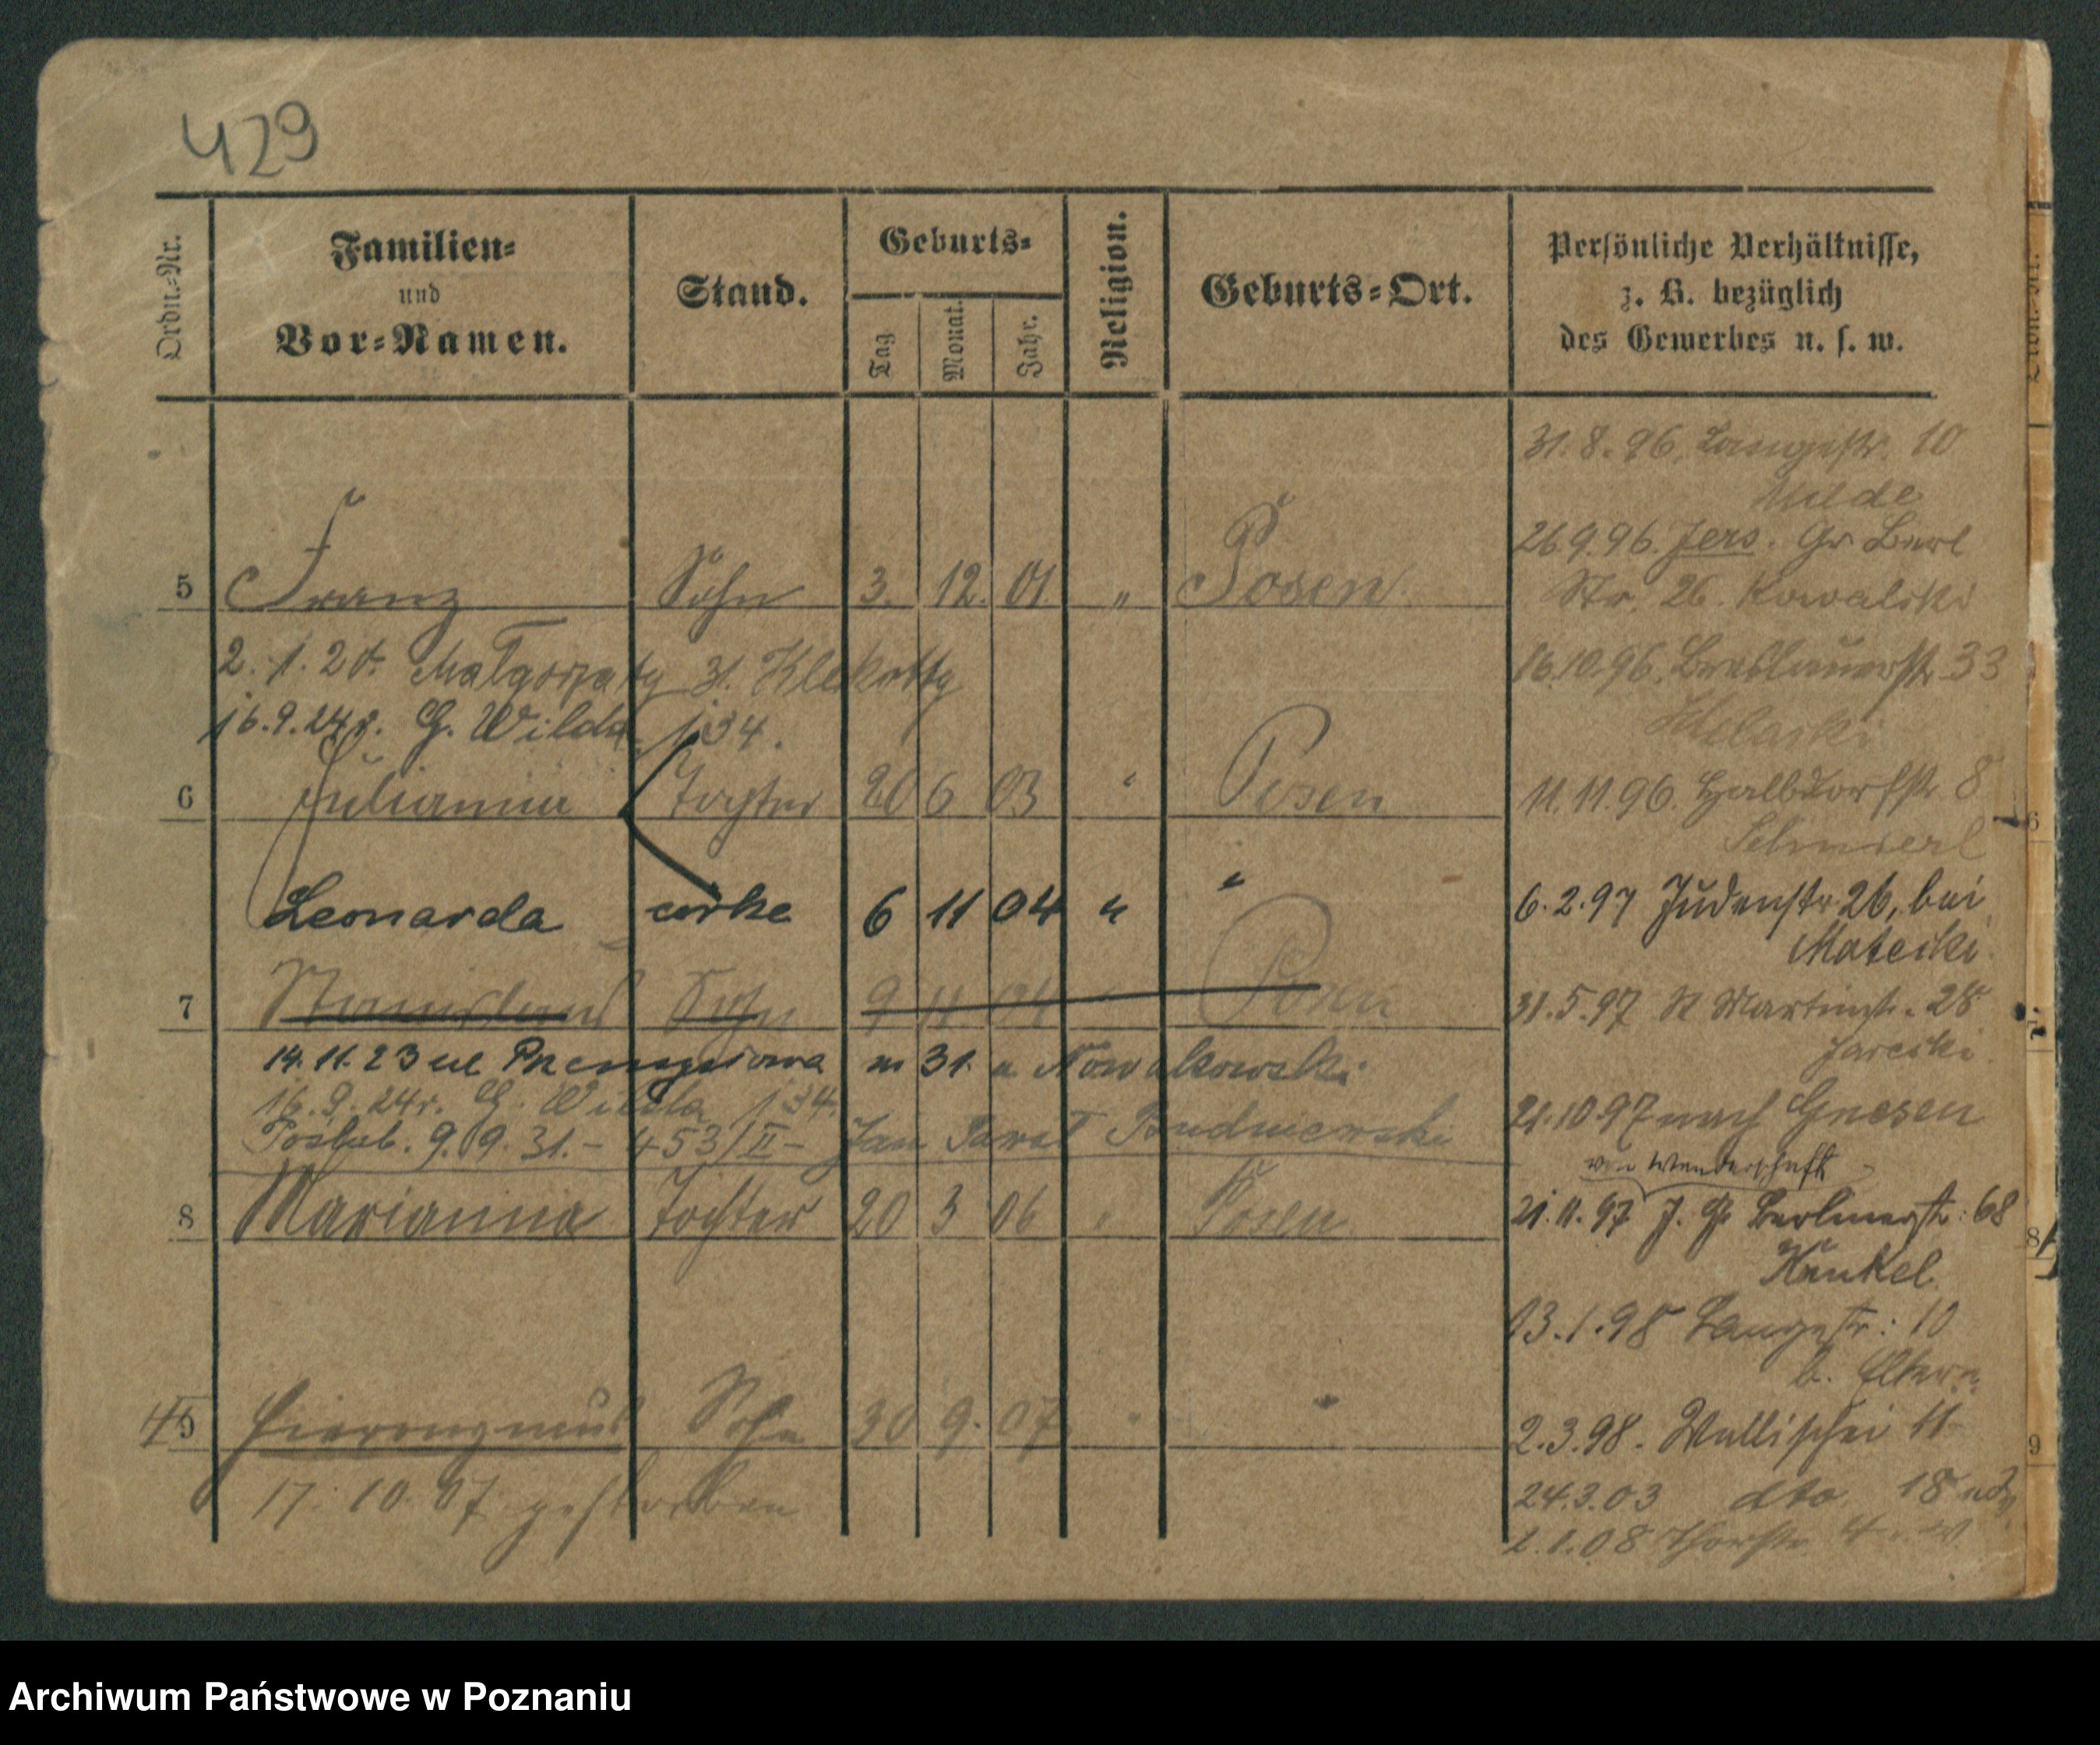 429
Ordn.-Nr.
Familien-
und
Vor-Namen.
Stand.
Geburts-
Tag
Monat.
Jahr.
Religion.
Geburts-Ort.
Persönliche Verhältnisse,
z. B. bezüglich
des Gewerbes u. s. w.
5 Franz Sohn 3. 12. 01. " Posen
2. 1. 20. Małgorzaty 31. Klekotty
16.9.24r. G. Wilda 134.
6 Julianna Tochter 20 6 03 " Posen
Leonarda córka 6 11 04 " "
7 Stanislaus Sohn 9 11 04 Posen
14.11.23 ul Przemysłowa m 31. u Nowakowski
16.9.24r. G. Wilda 134.
Poślub. 9.9.31.- 453/II- Jan Paweł Budniewski
8 Marianna Tochter 20 3 06 " Posen
9 Hieronymus Sohn 30 9. 07 "
17. 10. 07 gestorben
31.8.96. Langestr. 10
26.9.96. Jers. Gr. Berl
Str. 26. Kowalski
16.10.96. Breslauerstr. 33
11.11.96. Halbdorfstr. 8
6.2.97 Judenstr 26, bei
Matecki.
31.5.97 St Martinstr. 28
Jarecki.
21.10.97 nach Gnesen
von Wanderschaft
21.11.97 J. Gr. Berlinerstr: 68
Kunkel.
13.1.98 Langestr: 10
b. Eltern
2.3.98. Wallischei 11
24.3.03 dto 18
2.1.08 Thorstr. 4
6
7
8
9
Archiwum Państwowe w Poznaniu